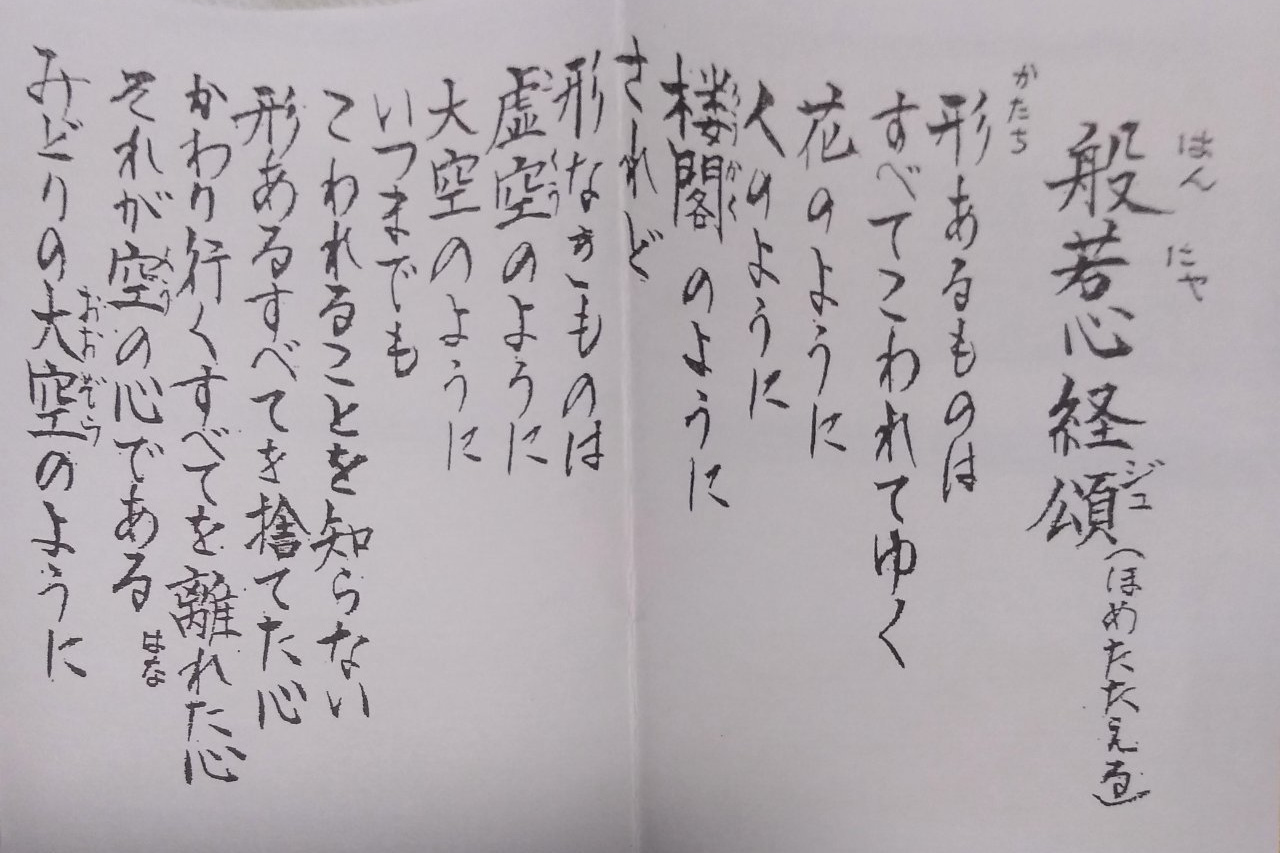 般若心経頌(ほめたたえる)
はんにや
ジュ
形あるものは
かたち
すべてこわれてゆく
花のように
人のように
楼閣のように
ろうかく
されど
形なきものは
虚空のように
こくう
大空のように
いつまでも
こわれることを知らない
形あるすべてを捨てた心
かわり行くすべてを離れた心
はな
それが空の心である
くう
みどりの大空のように
おおぞら